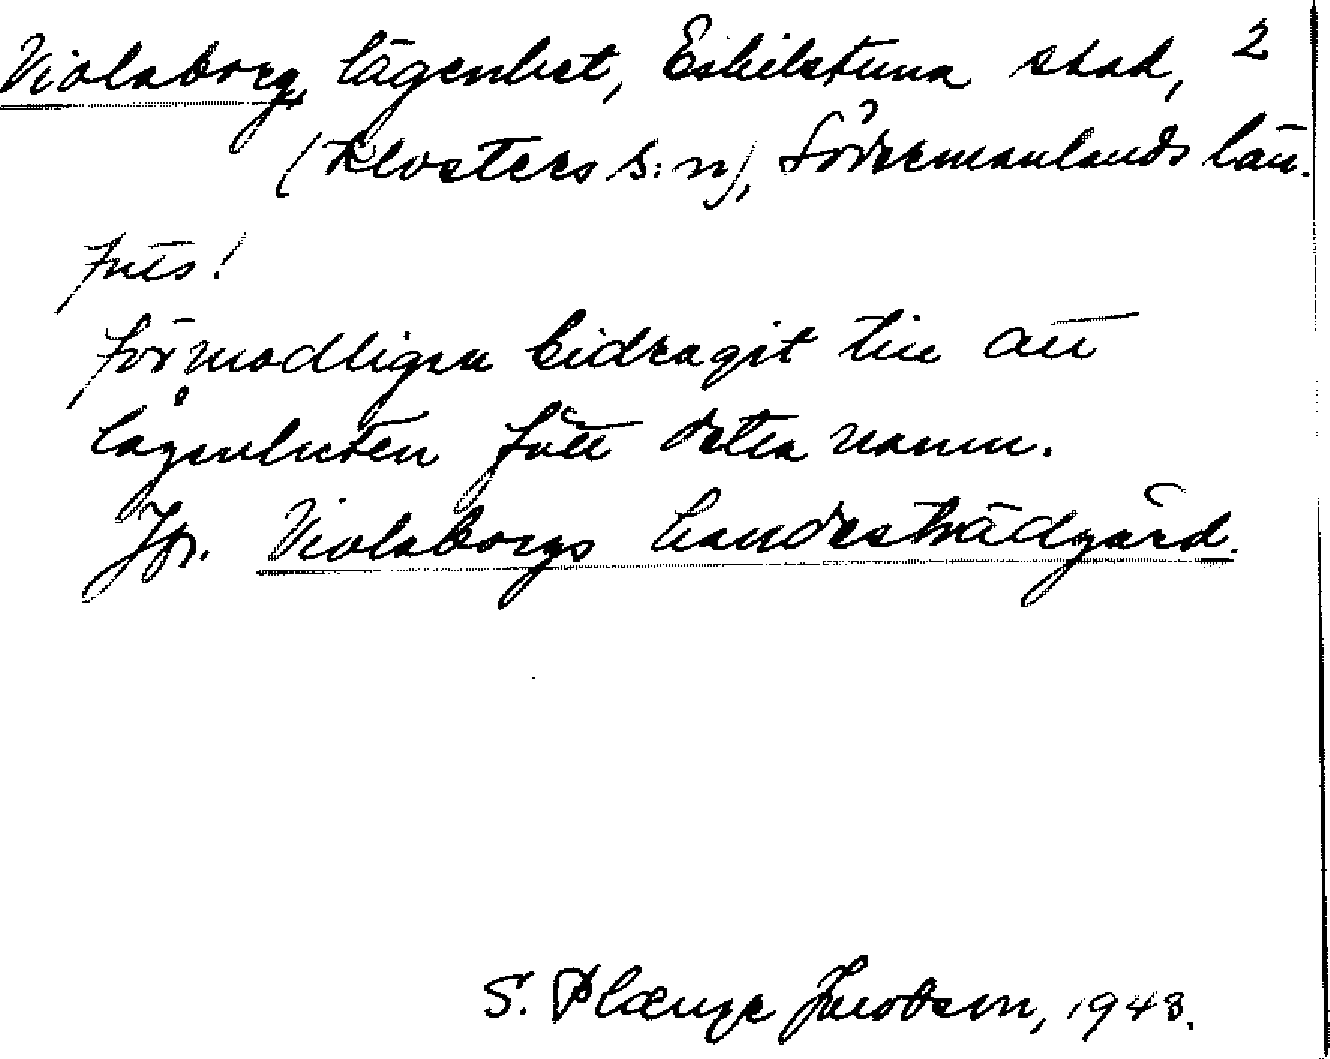 Violaborg, lägenhet, Eskilstuna stad, 2
(Klosters s:n), Södermanlands län.
forts!
förmodligen bidragit till att
lägenheten fått detta namn.
Jfr. Violaborgs handesträdgård.
S. Plænge Jacobson, 1948.